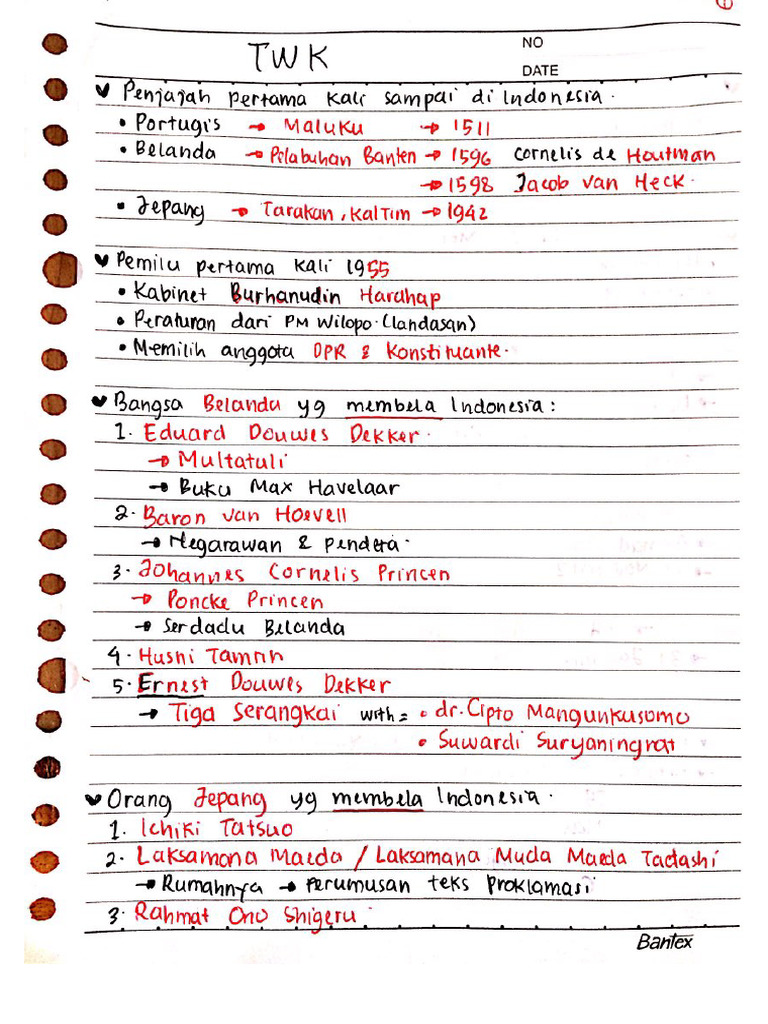 TWK
NO
DATE
Penjajah pertama kali sampai di Indonesia.
• Portugis → Maluku → 1511
• Belanda → Pelabuhan Banten → 1596 Cornelis de Houtman
→ 1598 Jacob van Heck.
• Jepang → Tarakan, Kaltim → 1942
Pemilu pertama kali 1955
• Kabinet Burhanudin Harahap
• Peraturan dari PM Wilopo. (landasan)
• Memilih anggota DPR & Konstituante.
Bangsa Belanda yg membela Indonesia:
1. Eduard Douwes Dekker.
→ Multatuli
→ Buku Max Havelaar
2. Baron van Hoevell
→ Negarawan & pendeta.
3. Johannes Cornelis Princen
→ Poncke Princen
→ Serdadu Belanda
4. Husni Tamrin
5. Ernest Douwes Dekker
→ Tiga Serangkai with = • dr. Cipto Mangunkusomo
• Suwardi Suryaningrat
Orang Jepang yg membela Indonesia.
1. Ichiki Tatsuo
2. Laksamana Maeda / Laksamana Muda Maeda Tadashi
→ Rumahnya → Perumusan teks Proklamasi
3. Rahmat Ono Shigeru.
Bantex